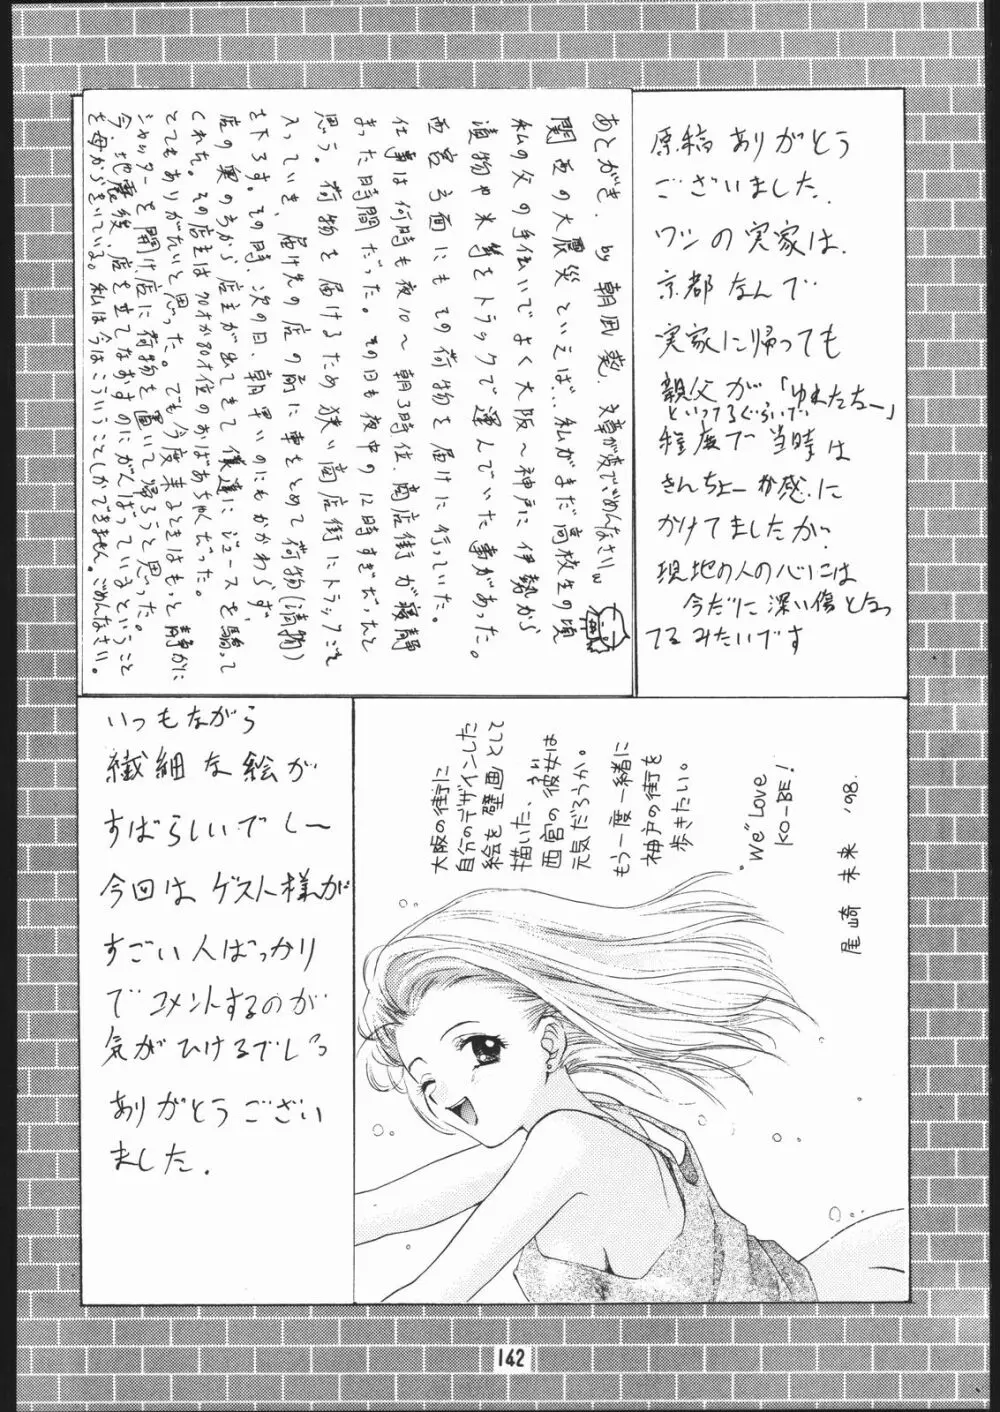 あとがき. by 朝凪 葵. 文章が変でごめんなさいw
関西の大震災といえば…私がまだ高校生の頃
私の父の手伝いでよく大阪〜神戸に伊勢から
漬物や米等をトラックで運んでいた事があった。
西宮方面にもその荷物を届けに行っていた。
仕事は何時も夜10〜朝3時位、商店街が寝静
まった時間だった。その日も夜中の12時すぎだったと
思う。荷物を届けるため狭い商店街にトラックごと
入っていき、届け先の店の前に車をとめて荷物(漬物)
を下ろす。その時、次の日、朝早いのにもかかわらず、
店の奥の方から店主が出てきて僕達にジュースを騒って
くれた。その店主は70才か80才位のおばあちゃんだった。
とてもありがたいと思った。でも今度来るときはもっと静かに
シャッターを開け店に荷物を置いて帰ろうと思った。
今、地震後、店を立てなおすのにがんばっているということ
を母からきいている。私は今はこういうことしかできません。ごめんなさい。
原稿ありがとう
ございました.
ワシの実家は.
京都なんで
実家に帰っても
親父が「ゆれたなー」
といってるぐらいで
程度で当時は
きんちょー感に
かけてましたが、
現地の人の心には
今だに深い傷となっ
てるみたいです
いつもながら
繊細な絵が
すばらしいでしー
今回はゲスト様が
すごい人ばっかり
でコメントするのが
気がひけるでしっ
ありがとうござい
ました.
大阪の街に
自分のデザインした
絵を壁画として
描いた、
西宮の彼女は
元気だろうか。
もう一度一緒に
神戸の街を
歩きたい。
"We" Love
KO-BE!
尾崎 未来 '98.
142